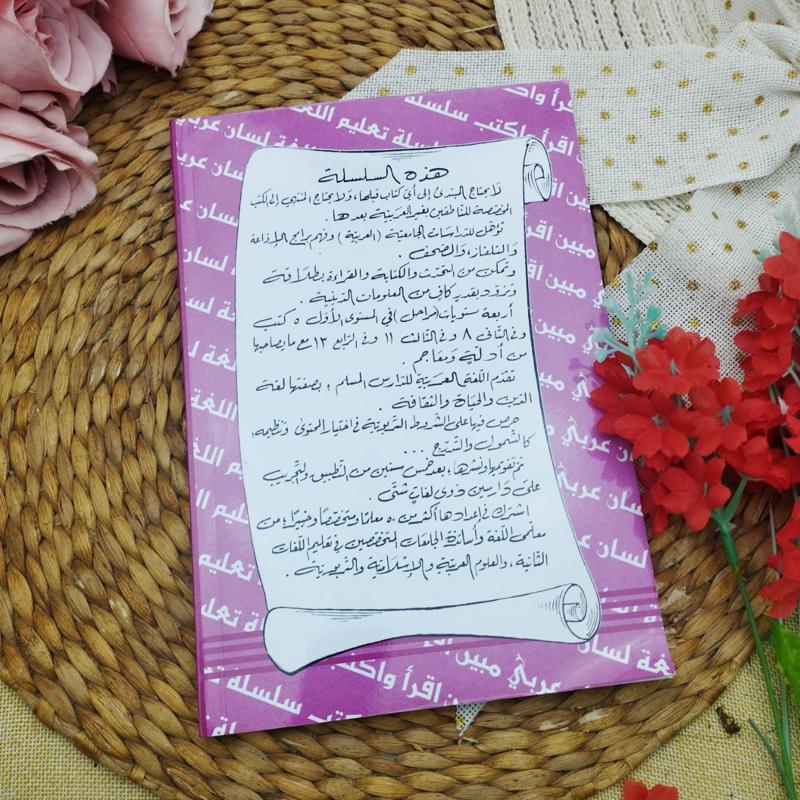 هذه السلسلة
لا يحتاج المبتدئ إلى أي كتاب قبلها، ولا يحتاج المنتهي إلى الكتب
المخصصة للناطقين بغير العربية بعدها.
تؤهل للدراسات الجامعية (العربية) وفهم برامج الإذاعة
والتلفاز، والصحف.
وتمكن من التحدث والكتابة والقراءة بطلاقة
وتزود بقدر كاف من المعلومات الدينية.
أربعة مستويات (مراحل) في المستوى الأول ٥ كتب
وفي الثاني ٨ وفي الثالث ١١ وفي الرابع ١٣ مع ما يصاحبها
من أدلة ومعاجم.
تقدم اللغة العربية للدارس المسلم؛ بصفتها لغة
الدين والحياة والثقافة.
حرص فيها على الشروط التربوية في اختيار المحتوى وتنظيمه؛
كالشمول والتدرج ...
تم تقويمها ونشرها؛ بعد خمس سنين من التطبيق والتجريب
على دارسين ذوي لغات شتى.
اشترك في إعدادها أكثر من ٥٠ معلما ومتخصصا وخبيرا؛ من
معلمي اللغة وأساتذة الجامعات المتخصصين في تعليم اللغات
الثانية، والعلوم العربية والإسلامية والتربوية.